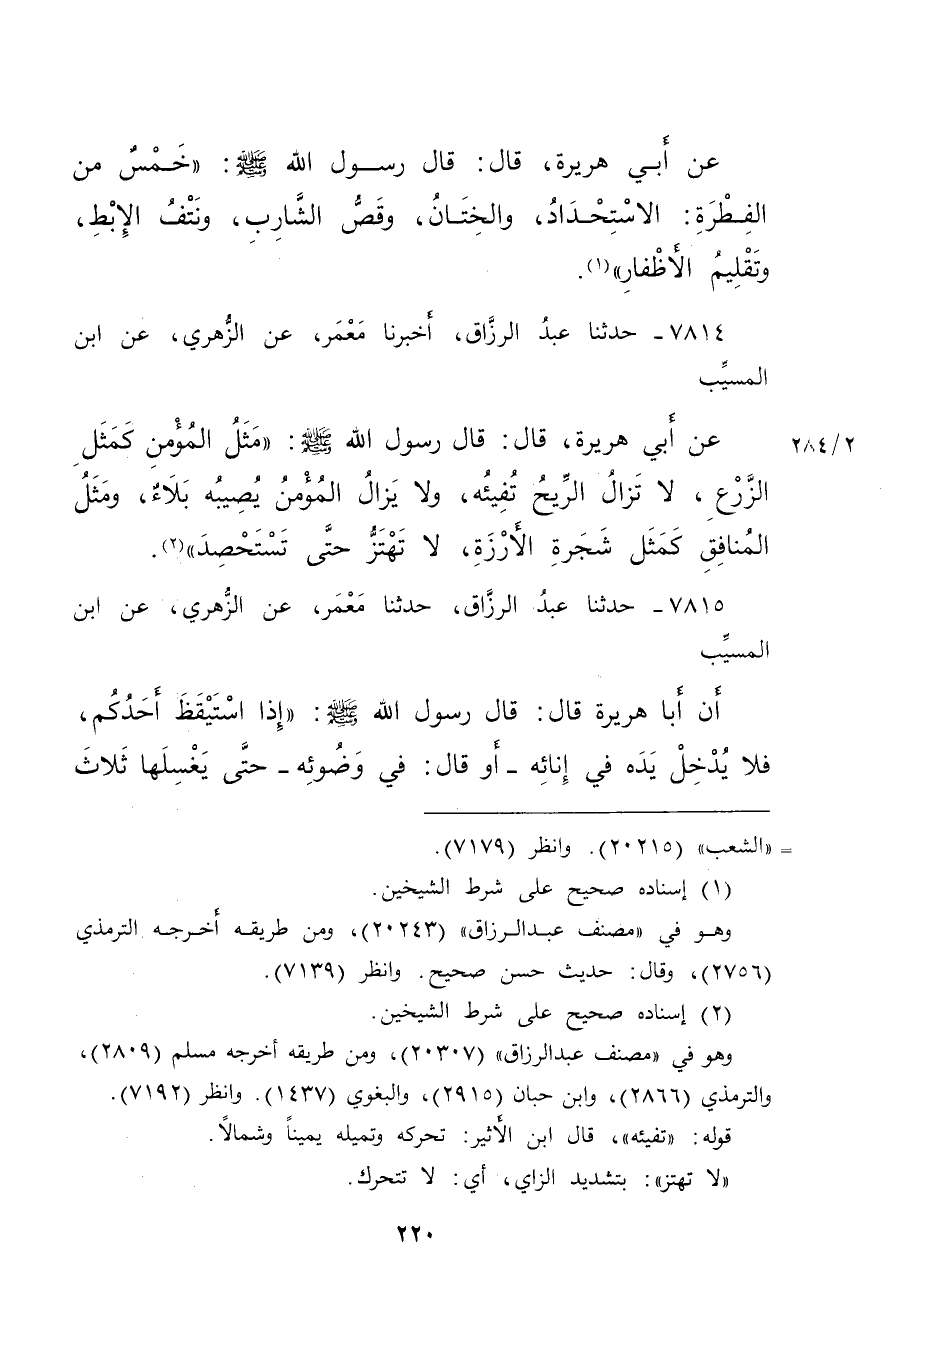 عن أَبـي هريرة، قال: قال رســول الله ﷺ: «خَـمْسٌ من
الفِـطْرَةِ: الاسْتِـحْـدَادُ، والخِتَـانُ، وقَصُّ الشَّارِبِ، ونَتْفُ الإِبْطِ،
وتَقْلِيمُ الأَظْفارِ»(١).
٧٨١٤ـ حدثنا عبدُ الرزَّاق، أَخبرنا مَعْمَر، عن الزُّهري، عن ابن
المسيِّب
عن أَبي هريرة، قال: قال رسول الله ﷺ: «مَثَلُ المُؤْمنِ كَمَثَلِ
٢٨٤/٢
الزَّرْعِ، لا تَزالُ الرِّيحُ تُفيئُه، ولا يَزالُ المُؤْمنُ يُصِيبُه بَلَاءٌ، ومَثَلُ
المُنافِقِ كَمَثَل شَجَرةِ الأَرْزَةِ، لا تَهْتَزُّ حتَّى تَسْتَحْصِدَ»(٢).
٧٨١٥ـ حدثنا عبدُ الرزَّاق، حدثنا مَعْمَر، عن الزُّهري، عن ابن
المسيِّب
أَن أَبا هريرة قال: قال رسول الله ﷺ: «إِذا اسْتَيْقَظَ أَحَدُكُم،
فلا يُدْخِلْ يَدَه في إِنائِه ـ أَو قال: في وَضُوئِه ـ حتَّى يَغْسِلَها ثَلاثَ
= «الشعب» (٢٠٢١٥). وانظر (٧١٧٩).
(١) إسناده صحيح على شرط الشيخين.
وهـو في «مصنف عبـدالـرزاق» (٢٠٢٤٣)، ومن طريقـه أخـرجـه الترمذي
(٢٧٥٦)، وقال: حديث حسن صحيح. وانظر (٧١٣٩).
(٢) إسناده صحيح على شرط الشيخين.
وهو في «مصنف عبدالرزاق» (٢٠٣٠٧)، ومن طريقه أخرجه مسلم (٢٨٠٩)،
والترمذي (٢٨٦٦)، وابن حبان (٢٩١٥)، والبغوي (١٤٣٧). وانظر (٧١٩٢).
قوله: «تفيئه»، قال ابن الأثير: تحركه وتميله يميناً وشمالاً.
«لا تهتز»: بتشديد الزاي، أي: لا تتحرك.
٢٢٠